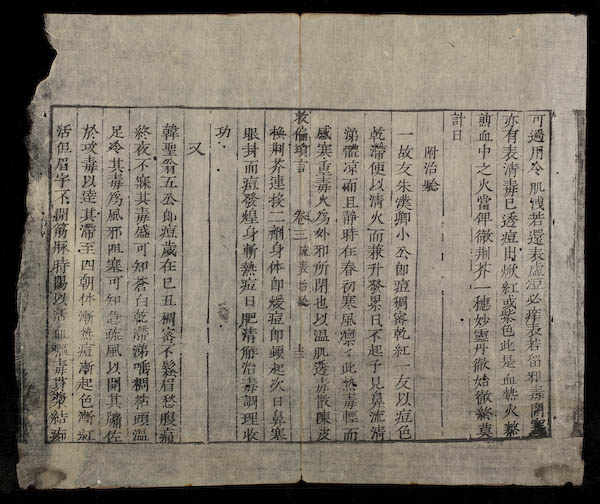 可過用冷肌淺若還表虛痘必痒表若留邪毒閉塞
亦有表清毒已透痘間焮紅或紫色此是血熱火蒸
煎血中之火當俾徹荆芥一穗妙靈丹徹始徹終莫
討日
附治驗
一故友朱漢卿小公郎痘稠密乾紅一友以痘色
乾滯便以清火而兼升發累日不起予見鼻流清
涕體凉而且靜時在春初寒風凛此熱毒輕而
感寒重毒火為外邪所閉也以溫肌透毒散陳皮
救偏瑣言 卷三 疏表治驗 十三
換荆芥連投二劑身体即煖痘即頭起次日鼻塞
眼封而痘發煌身漸熱痘日肥清解治毒調理收
功
又
韓聖翁五公郎痘歲在己丑稠密不鬆眉愁腹痛
終夜不寐其毒盛可知蒼白乾滯涕嚏稠粘頭溫
足冷其毒為風邪阻塞可知急疏風以開其牖佐
於攻毒以達其滯至四朝体漸熱痘漸起色漸紅
活但眉宇不開筋脉時惕以漸血毒貫結痂